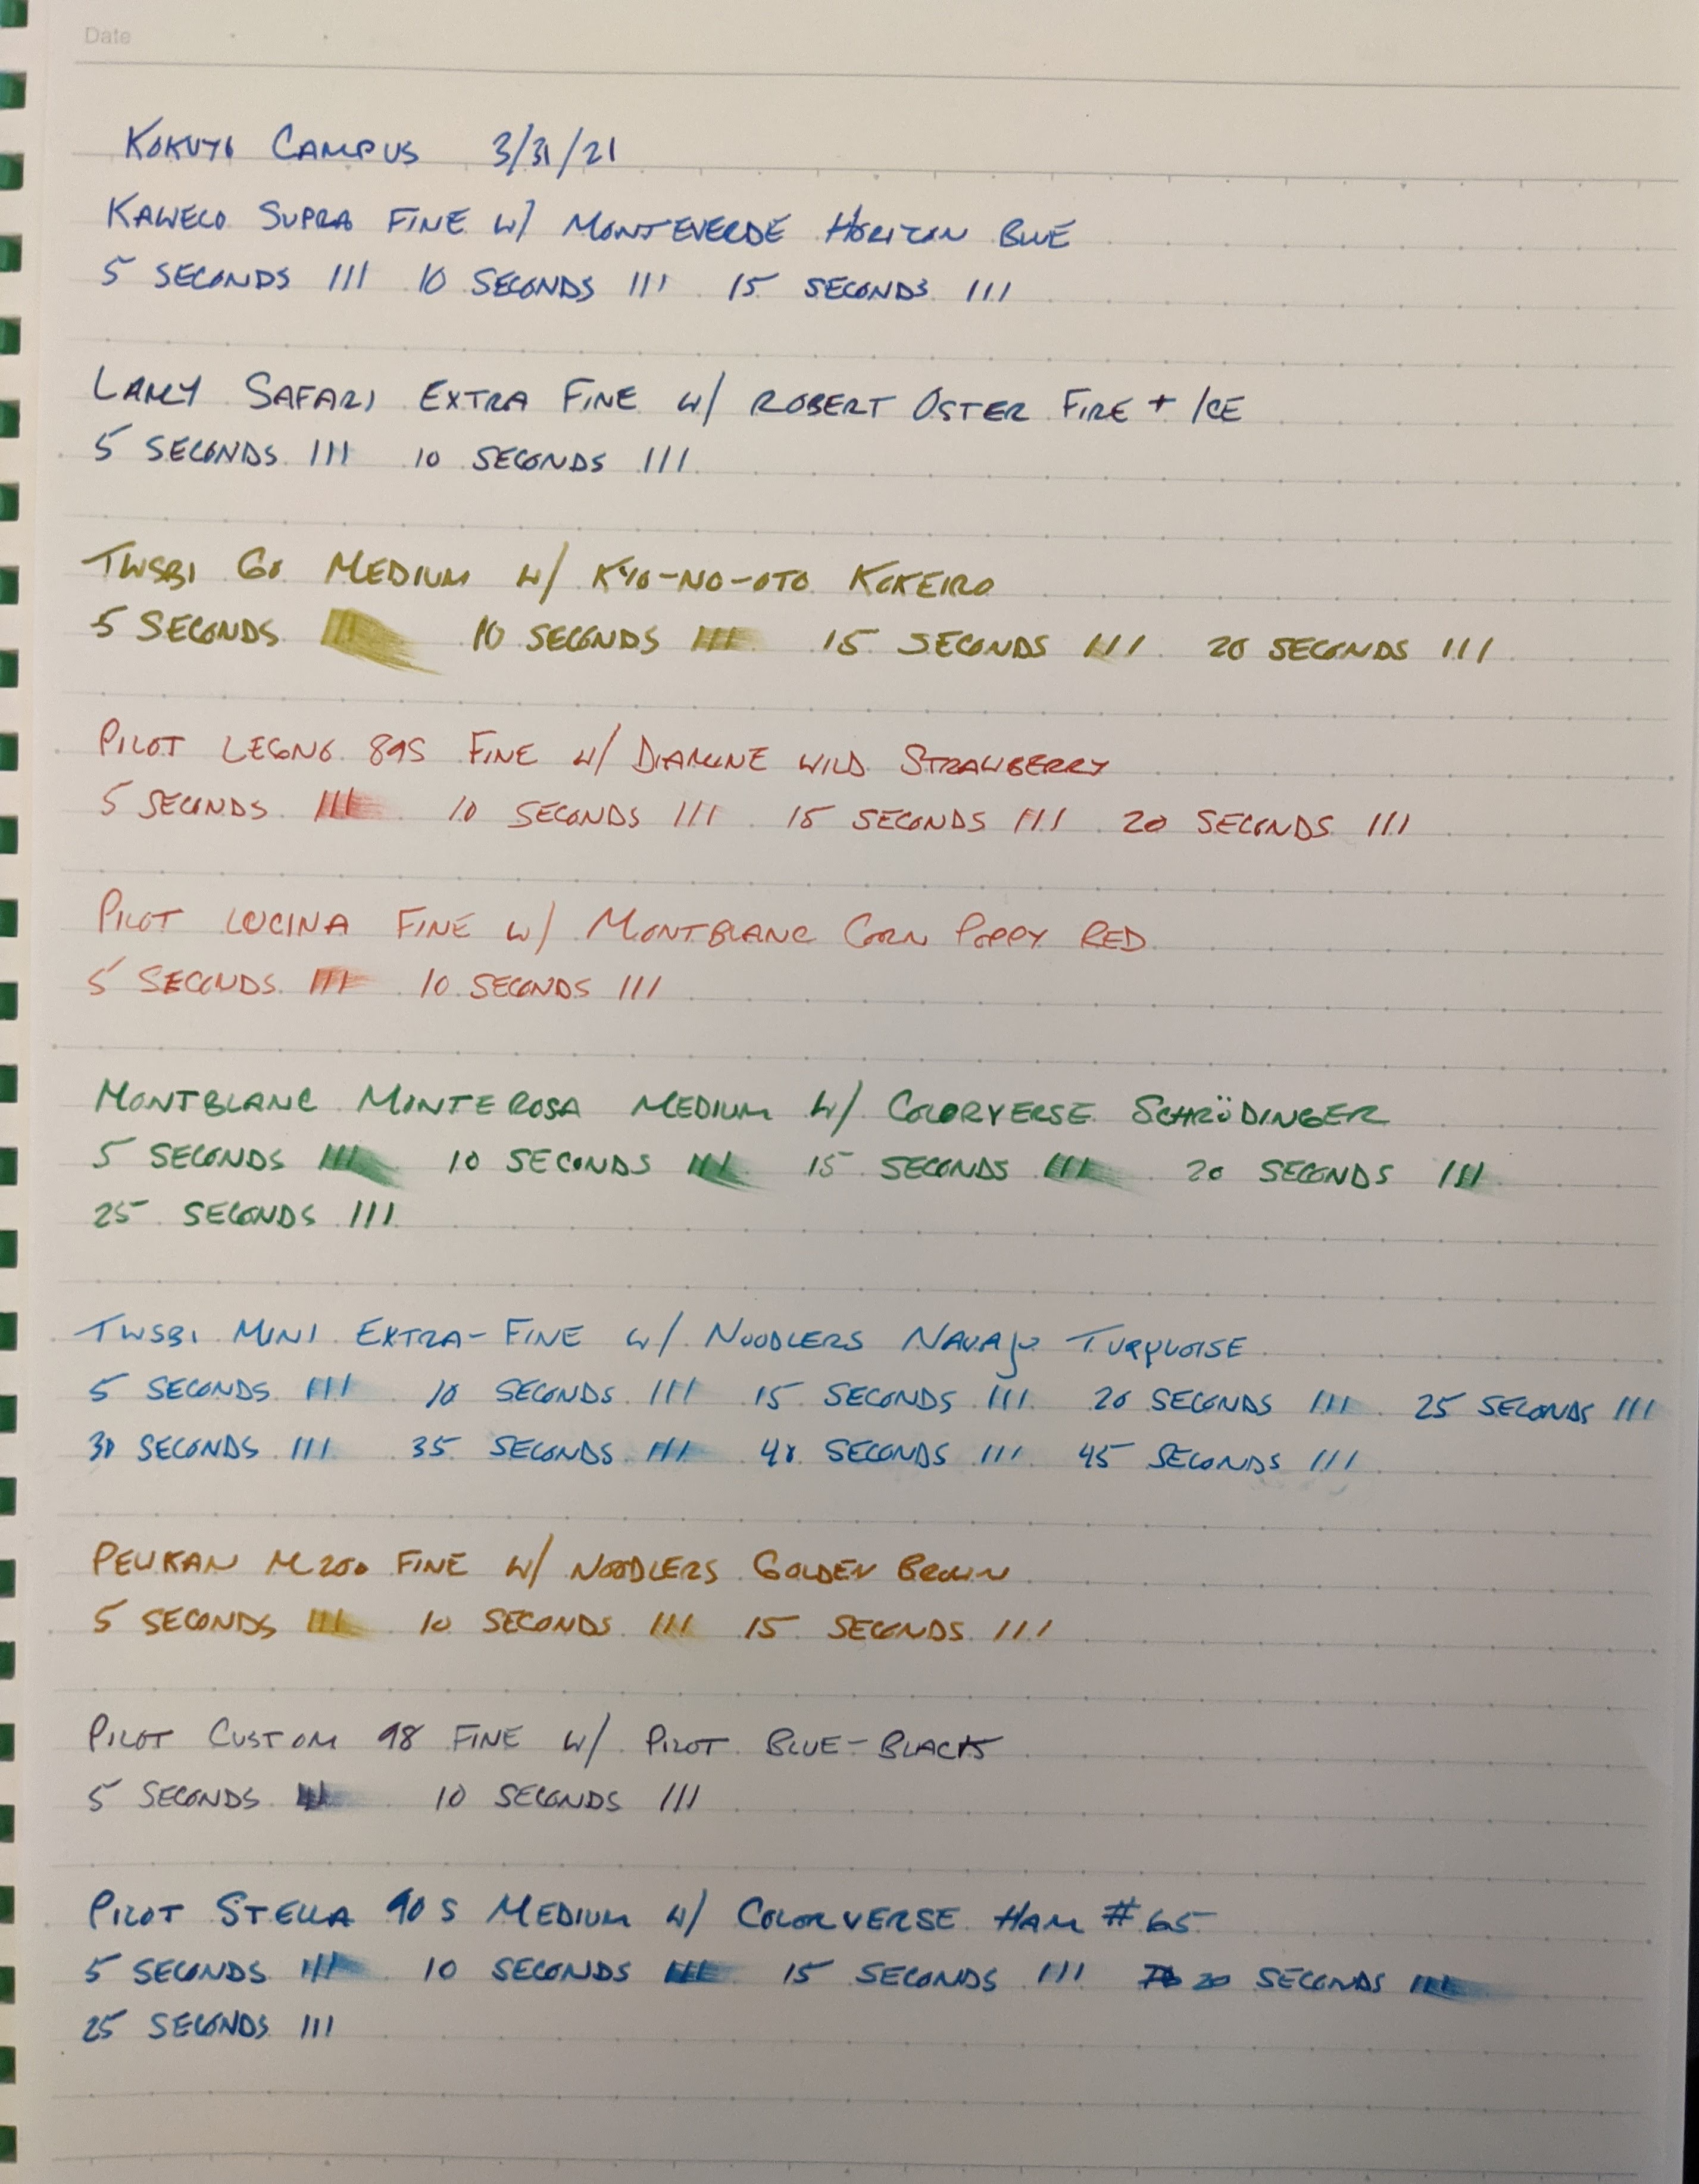 Date
KOKUYO CAMPUS 3/31/21
KAWECO SUPRA FINE W/ MONTEVERDE HORIZON BLUE
5 SECONDS III 10 SECONDS III 15 SECONDS III
LAMY SAFARI EXTRA FINE W/ ROBERT OSTER FIRE + ICE
5 SECONDS III 10 SECONDS III
TWSBI GO MEDIUM W/ KYO-NO-OTO KOKEIRO
5 SECONDS III 10 SECONDS III 15 SECONDS III 20 SECONDS III
PILOT LEGNO 89S FINE W/ DIAMINE WILD STRAWBERRY
5 SECONDS III 10 SECONDS III 15 SECONDS III 20 SECONDS III
PILOT LUCINA FINE W/ MONTBLANC CORN POPPY RED
5 SECONDS III 10 SECONDS III
MONTBLANC MONTE ROSA MEDIUM W/ COLORVERSE SCHRÖDINGER
5 SECONDS III 10 SECONDS III 15 SECONDS III 20 SECONDS III
25 SECONDS III
TWSBI MINI EXTRA-FINE W/ NOODLERS NAVAJO TURQUOISE
5 SECONDS III 10 SECONDS III 15 SECONDS III 20 SECONDS III 25 SECONDS III
30 SECONDS III 35 SECONDS III 40 SECONDS III 45 SECONDS III
PELIKAN M200 FINE W/ NOODLERS GOLDEN BROWN
5 SECONDS III 10 SECONDS III 15 SECONDS III
PILOT CUSTOM 98 FINE W/ PILOT BLUE-BLACK
5 SECONDS III 10 SECONDS III
PILOT STELLA 90S MEDIUM W/ COLORVERSE HAM #65
5 SECONDS III 10 SECONDS III 15 SECONDS III 20 SECONDS III
25 SECONDS III